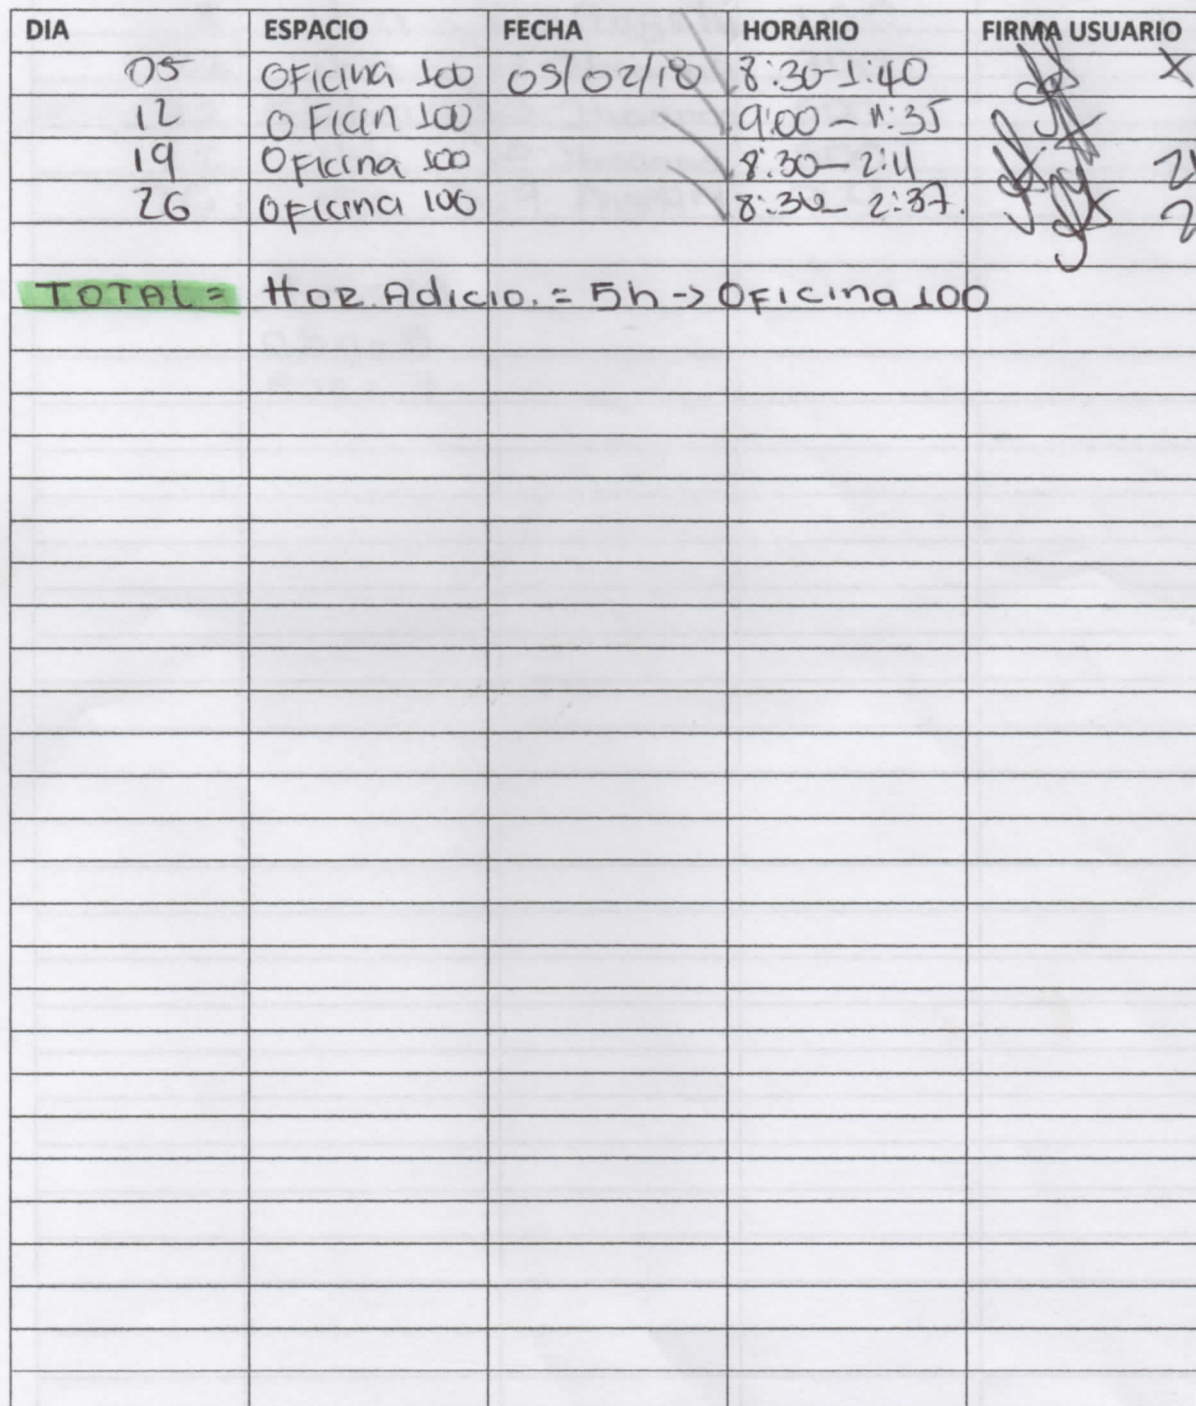 DIA ESPACIO FECHA HORARIO FIRMA USUARIO
05 OFicina 100 05/02/18 8:30-1:40 X
12 OFicin 100 9:00-11:35
19 OFicina 100 8:30-2:11
26 OFicina 100 8:30-2:37.
TOTAL= Hor. Adicio. = 5h -> OFicina 100